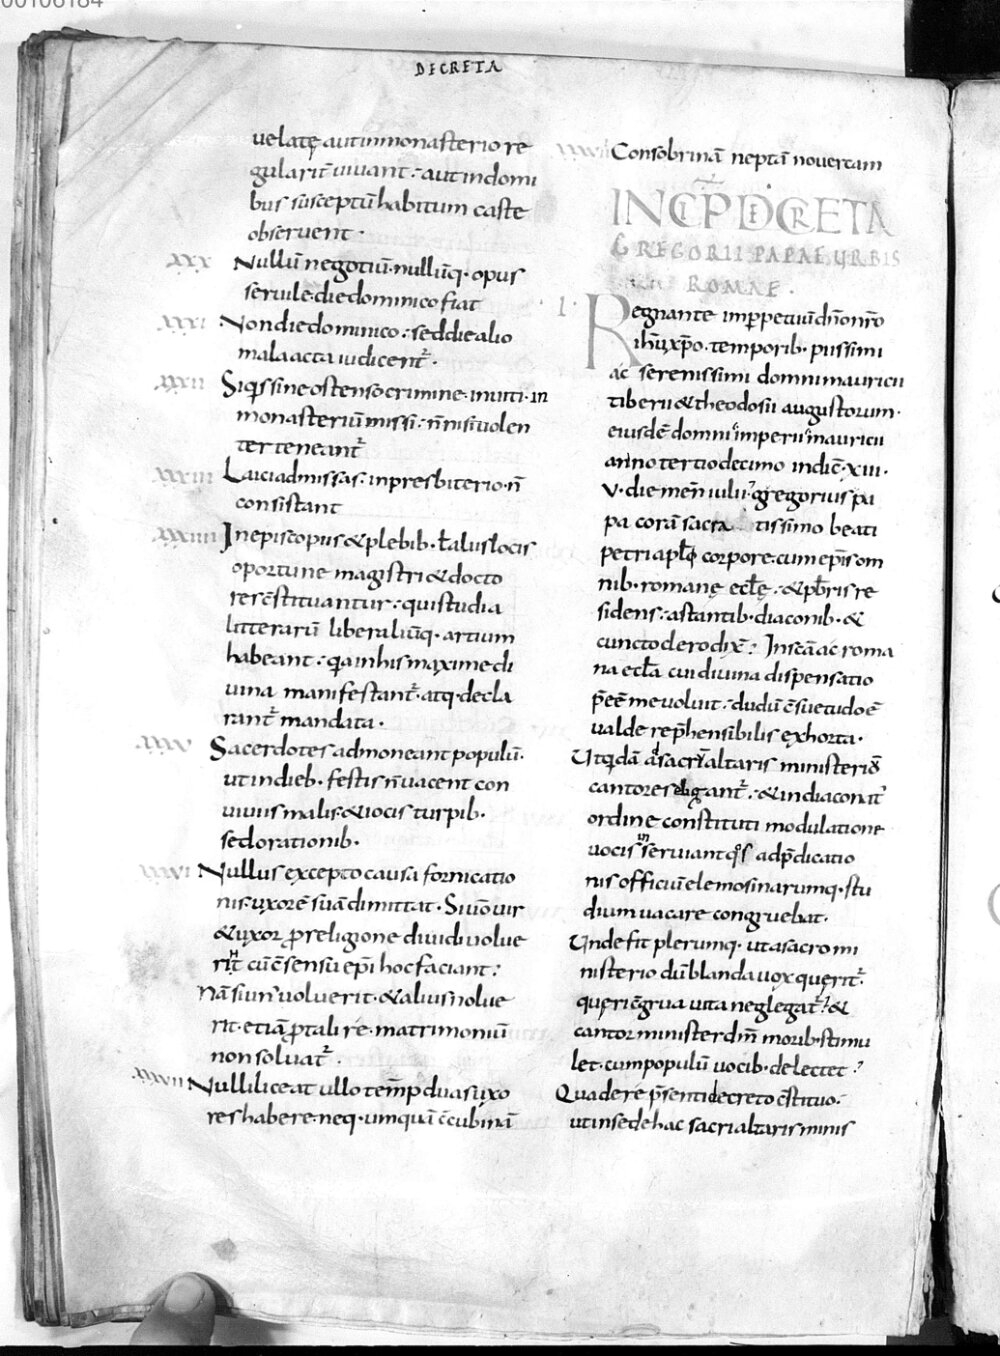 00106184
DECRETA
velatę aut in monasterio re
gularit̄ vivant : aut in domi
bus susceptū habitum caste
observent ·
xxx Nullū negotiū · nullūq · opus
servile · die dominico fiat
xxxi Non die dominico : sed die alio
mala acta iudicent̄ ·
xxxii Siq͛s sine ostenso crimine · inviti · in
monasteriū missi : n̄ nisi volen
ter teneant̄
xxxiii Laici ad missas : in presbiterio · n̄
consistant
xxxiiii In episcopiis & plebib · ƚ aliis locis
oportune magistri & docto
res c̄stituantur : qui studia
litterarū liberaliūq · artium
habeant : q̄a in his maxime di
vina manifestant̄ · atq · decla
rant̄ mandata ·
xxxv Sacerdotes admoneant populū ·
ut in dieb · festis n̄ vacent con
viviis malis : & iocis turpib ·
sed orationib ·
xxxvi Nullus excepto causa fornicatio
nis · uxorē suā dimittat · Si v̄o vir
& uxor ꝓ religione dividi volue
rīt cū c̄sensu ep̄i hoc faciant :
Nā si un᾽ voluerit · & alius nolue
rit · etiā ꝓ tali re · matrimoniū
non solvat̄ ·
xxxvii Nulli liceat ullo temp̄ duas uxo
res habere · neq · umquā c̄cubinā
xxxviii Consobrinā neptā novercam
INCIP DECRETA
GREGORII PAPAE URBIS
ROMAE ·
I · Regnante imp̄petuū dn̄o nr̄o
ih̄u xp̄o · temporib · piissimi
ac serenissimi domni mauricii
tiberii & theodosii augustorum ·
eiusdē domni imperii mauricii
anno tertio decimo indic̄ · xiii ·
v · die men̄ iulii : gregorius pa
pa corā sacra tissimo beati
petri apƚi corpore · cum ep̄is om
nib · romanę eccƚę : & pb̄ris re
sidens : astantib · diaconib · &
cuncto clero dix̄ : In sc̄a ac roma
na eccƚa cui divina dispensatio
p̄eē me voluit : dudū c̄suetudo ē
valde rep̄hensibilis exhorta ·
Ut q̄dā ad sacri altaris ministeriū
cantores eligant̄ : & in diaconat᾽
ordine constituti modulatione
vocis inserviant q͛s ad p̄dicatio
nis officiū elemosinarumq · stu
dium vacare congruebat ·
Unde fit plerumq · ut a sacro mi
nisterio dū blanda vox querit̄ ·
queri c̄grua vita neglegat̄ : &
cantor minister dm̄ morib · stimu
let · cum populū vocib · delectet :
Qua de re p̄senti decreto c̄stituo ·
ut in sede hac sacri altaris minis